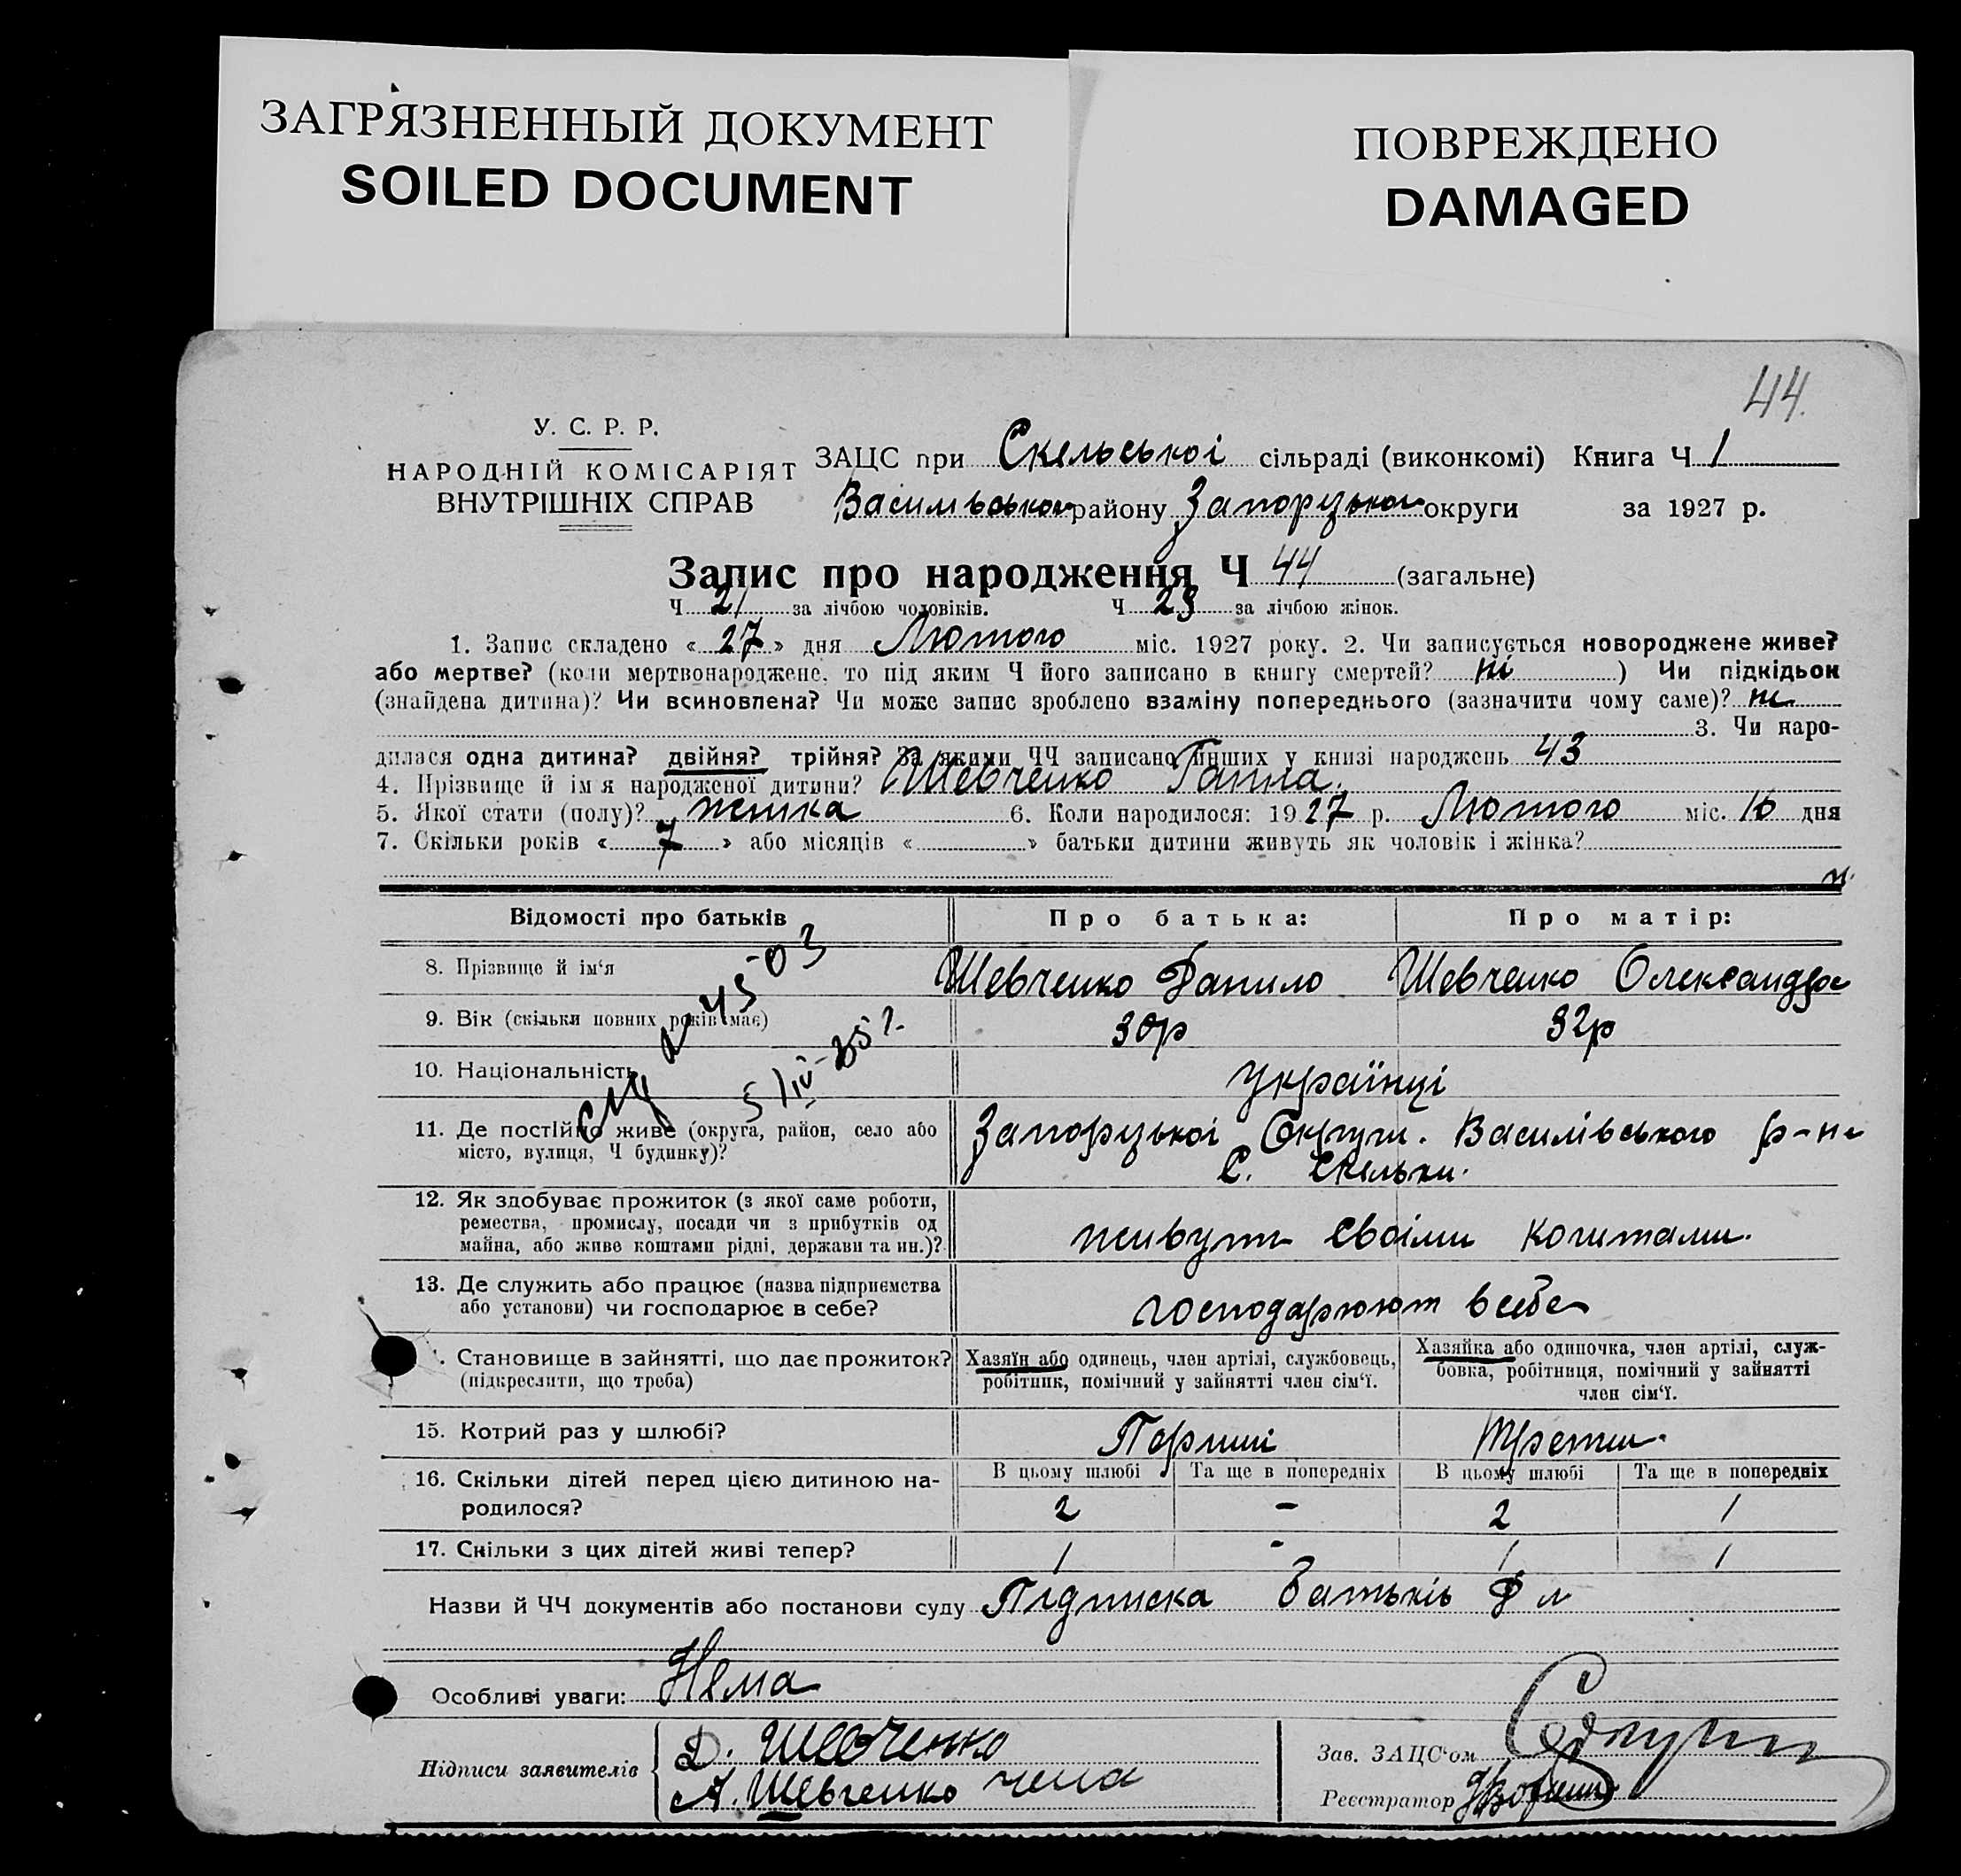 ЗАГРЯЗНЕННЫЙ ДОКУМЕНТ
SOILED DOCUMENT
ПОВРЕЖДЕНО
DAMAGED
44.
У. С. Р. Р.
НАРОДНІЙ КОМІСАРІЯТ
ВНУТРІШНІХ СПРАВ
ЗАЦС при Скельської сільраді (виконкомі) Книга Ч 1
Васильвського району Запорізького округи за 1927 р.
Запис про народження Ч 44 (загальне)
Ч 21 за лічбою чоловіків. Ч 23 за лічбою жінок.
1. Запис складено « 27 » дня Лютого міс. 1927 року. 2. Чи записується новороджене живе?
або мертве? (коли мертвонароджене, то під яким Ч його записано в книгу смертей? ні ) Чи підкідьок
(знайдена дитина)? Чи всиновлена? Чи може запис зроблено взаміну попереднього (зазначити чому саме)? ні
3. Чи наро-
дилася одна дитина? двійня? трійня? За якими ЧЧ записано инших у книзі народжень 43
4. Прізвище й ім'я народженої дитини? Шевченко Ганна.
5. Якої стати (полу)? жінка 6. Коли народилося: 1927 р. Лютого міс. 16 дня
7. Скільки років « 7 » або місяців « » батьки дитини живуть як чоловік і жінка?
Відомості про батьків
Про батька:
Про матір:
8. Прізвище й ім‘я Шевченко Данило Шевченко Олександра
9. Вік (скільки повних років має) 30р 32р
10. Національність Українці
11. Де постійно живе (округа, район, село або
місто, вулиця, Ч будинку)?
Запорізької Округи. Василівського р-на
с. Скельки.
12. Як здобуває прожиток (з якої саме роботи,
ремества, промислу, посади чи з прибутків од
майна, або живе коштами рідні, держави та ин.)?
живуть своіми коштами.
13. Де служить або працює (назва підприємства
або установи) чи господарює в себе?
господарюют в себе
. Становище в зайнятті, що дає прожиток?
(підкреслити, що треба)
Хазяїн або одинець, член артілі, службовець,
робітник, помічний у зайнятті член сім‘ї.
Хазяйка або одиночка, член артілі, служ-
бовка, робітниця, помічний у зайнятті
член сім‘ї.
15. Котрий раз у шлюбі? Перший Третій.
16. Скільки дітей перед цією дитиною на-
родилося?
В цьому шлюбі Та ще в попередніх В цьому шлюбі Та ще в попередніх
2 - 2 1
17. Скільки з цих дітей живі тепер? 1 - 1 1
Назви й ЧЧ документів або постанови суду Підписка батьків
Особливі уваги: Нема
Підписи заявителів
Д. Шевченко
А. Шевченко
Зав. ЗАЦС‘ом
Реєстратор